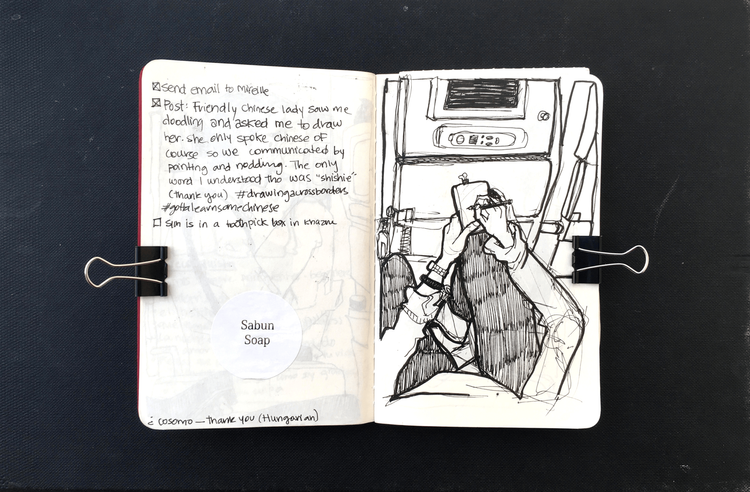 ☒ Send email to Mireille
☒ Post: Friendly Chinese lady saw me
doodling and asked me to draw
her. She only spoke Chinese of
course so we communicated by
pointing and nodding. The only
word I understood tho was "shishie"
(thank you) #drawingacrossborders
#gottalearnsomechinese
☐ Sim is in a toothpick box in
Sabun
Soap
cosomo — thank you (Hungarian)